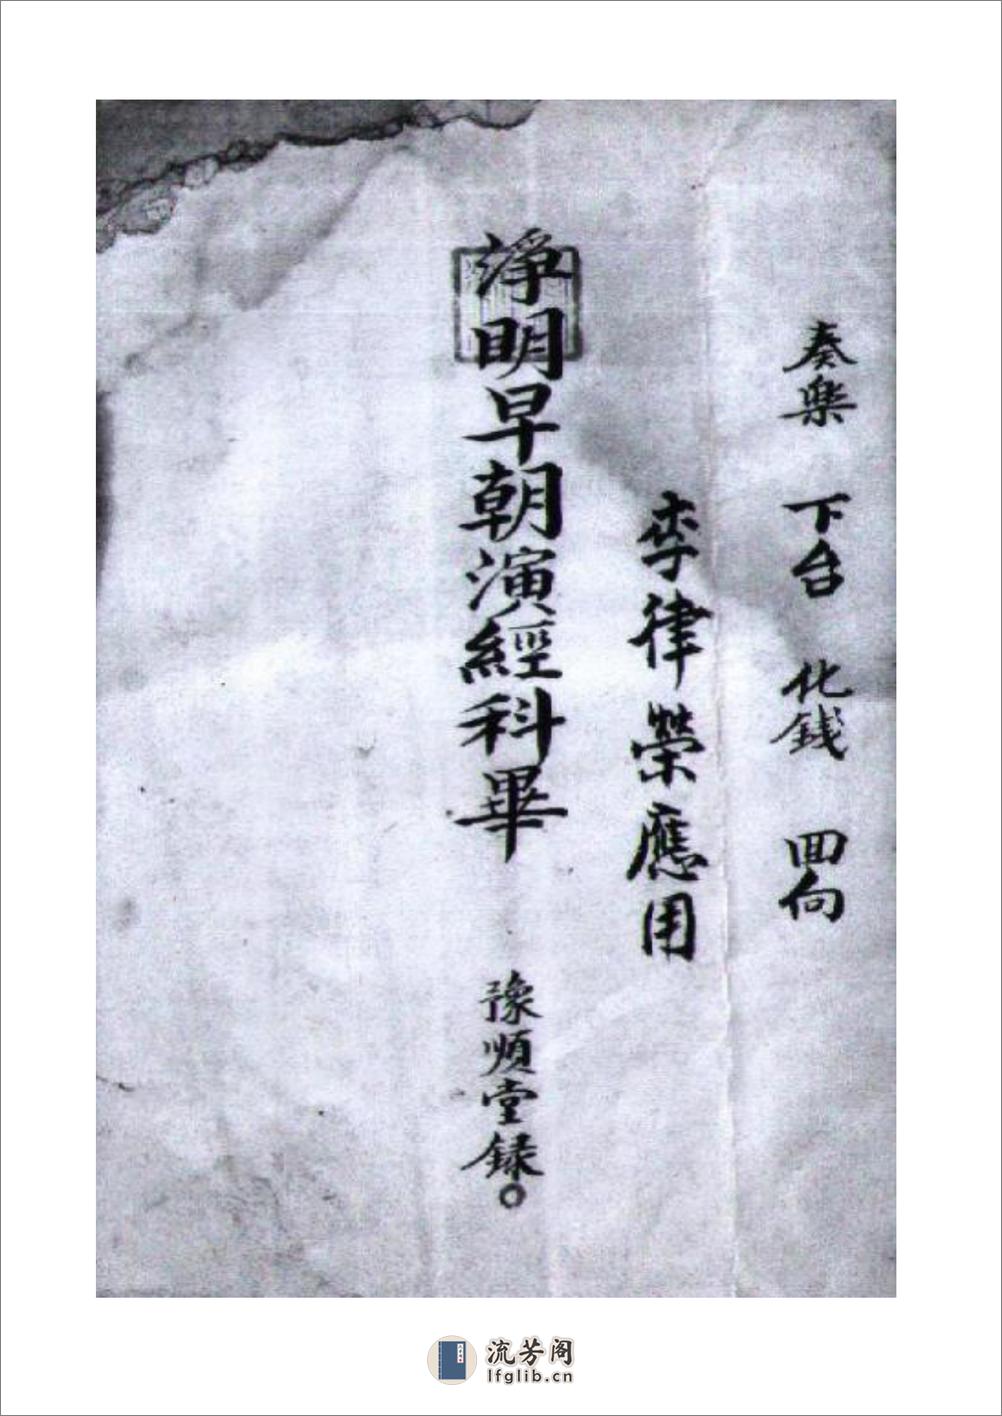 奏樂 下台 化錢 回向
李律榮應用
淨明早朝演經科畢 豫順堂録。
流芳阁
lfglib.cn